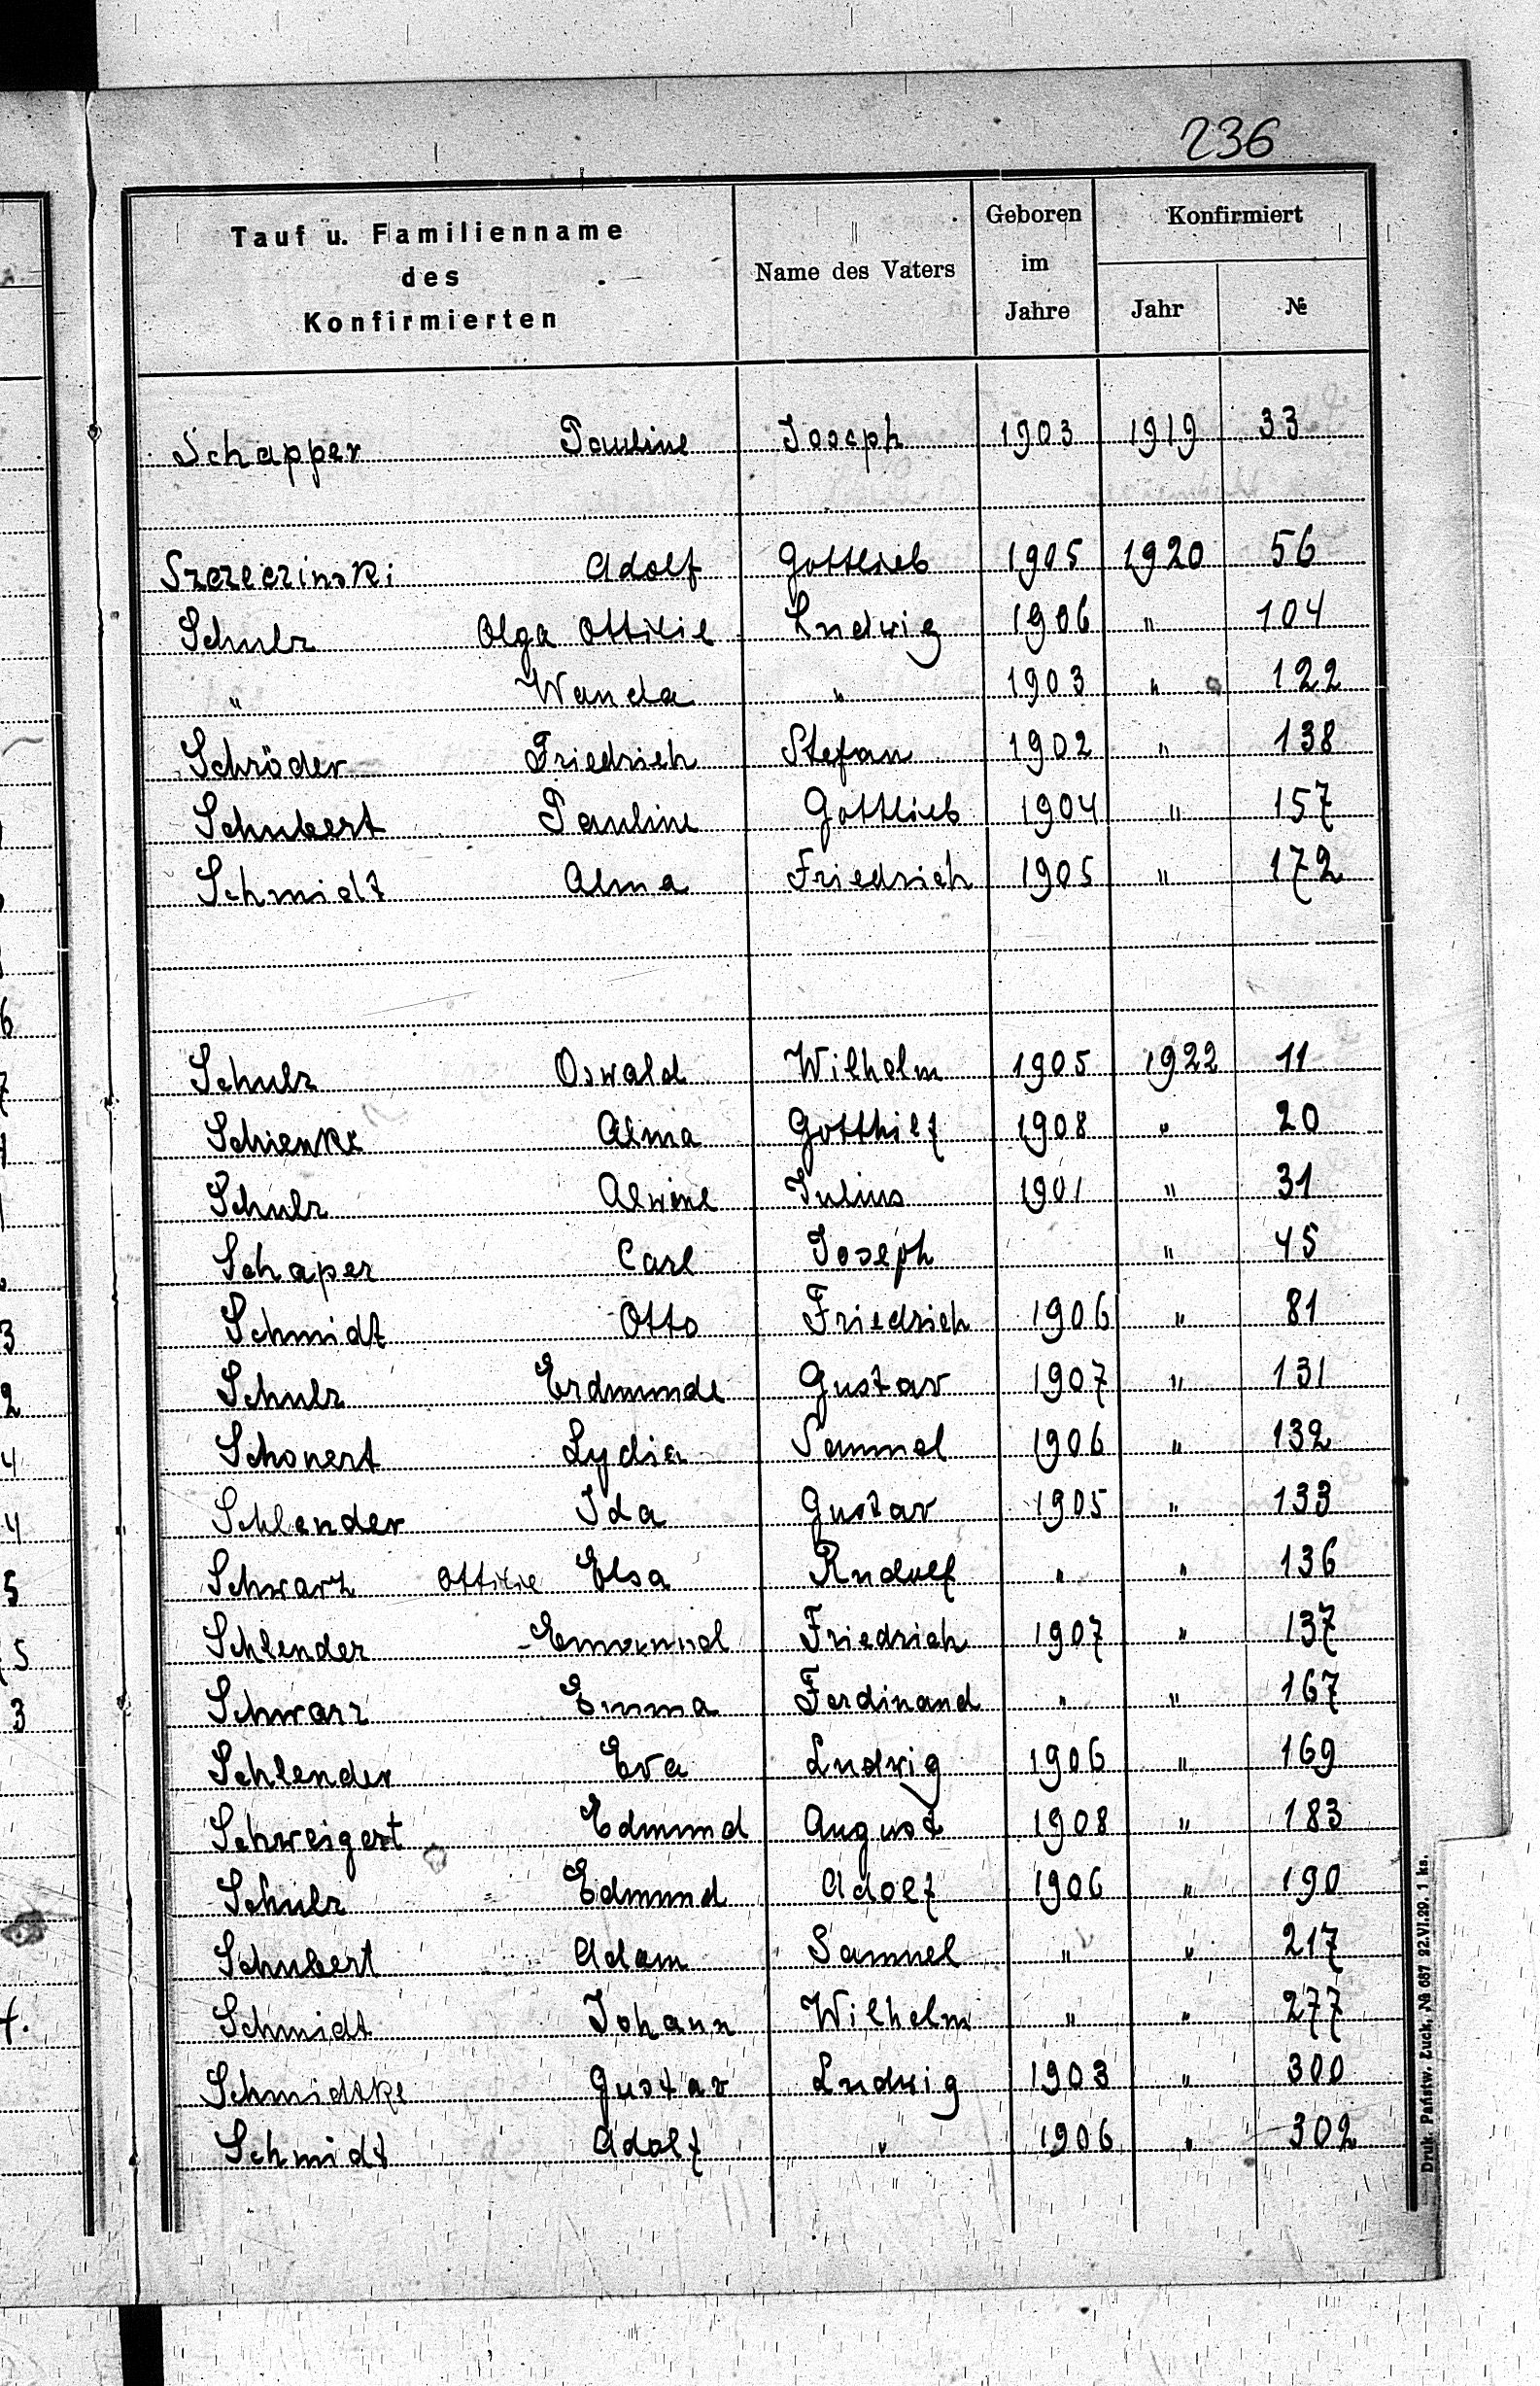 236
Tauf u. Familienname des Konfirmierten Name des Vaters Geboren im Jahre Konfirmiert Jahr №
Schapper Pauline Joseph 1903 1919 33
Szczeczinski Adolf Gottlieb 1905 1920 56
Schulz Olga Ottilie Ludwig 1906 " 104
" Wanda " 1903 " 122
Schröder Friedrich Stefan 1902 " 138
Schubert Pauline Gottlieb 1904 " 157
Schmidt Alma Friedrich 1905 " 172
Schulz Oswald Wilhelm 1905 1922 11
Schienke Alma Gotthilf 1908 " 20
Schulz Alwine Julius 1901 " 31
Schaper Carl Joseph " 45
Schmidt Otto Friedrich 1906 " 81
Schulz Erdmunde Gustav 1907 " 131
Schonert Lydia Samuel 1906 " 132
Schlender Ida Gustav 1905 " 133
Schwarz Ottilie Elsa Rudolf " " 136
Schlender Friedrich 1907 " 137
Schwarz Emma Ferdinand " " 167
Schlender Eva Ludwig 1906 " 169
Schweigert Edmund August 1908 " 183
Schulz Edmund Adolf 1906 " 190
Schubert Adam Samuel " " 217
Schmidt Johann Wilhelm " " 277
Schmidtke Gustav Ludwig 1903 " 300
Schmidt Adolf " 1906 " 302
Druk. Państw. Łuck, № 687 22.VI.29. 1 ks.